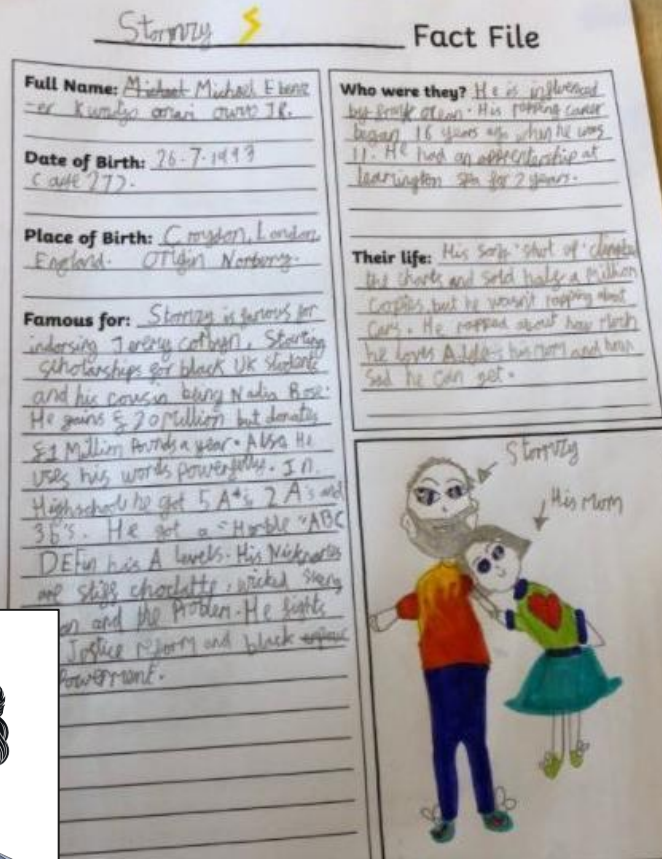 Stormzy Fact File
Full Name: Michael Michael Ebenz
-er Kumdjo omari owuo JR.
Date of Birth: 26-7-1993
(age 27).
Place of Birth: Croydon, London,
England. Origin Norbury.
Famous for: Stormzy is famous for
indorsing Jeremy Corbyn, Starting
Scholarships for black UK students
and his cousin being Nadia Rose.
He gains £20 Million but donates
£1 Million Pounds a year. Also He
uses his words powerfully. In
Highschool he got 5 A*'s, 2 A's and
3 b's. He got a "Horble" ABC
DE in his A levels. His Nicknames
are stiff choclatte, wicked
and the Problem. He fights
Jostice reform and black
Powerment.
Who were they? He is influenced
by frank ocean. His rapping career
began 16 years ago when he was
11. He had an apprentership at
learington spa for 2 years.
Their life: His song 'shut up' climbed
the charts and sold half a Million
Copies, but he wasn't rapping about
Cars. He rapped about how much
he loves Adele, his mom and how
sad he can get.
Stormzy
His mom